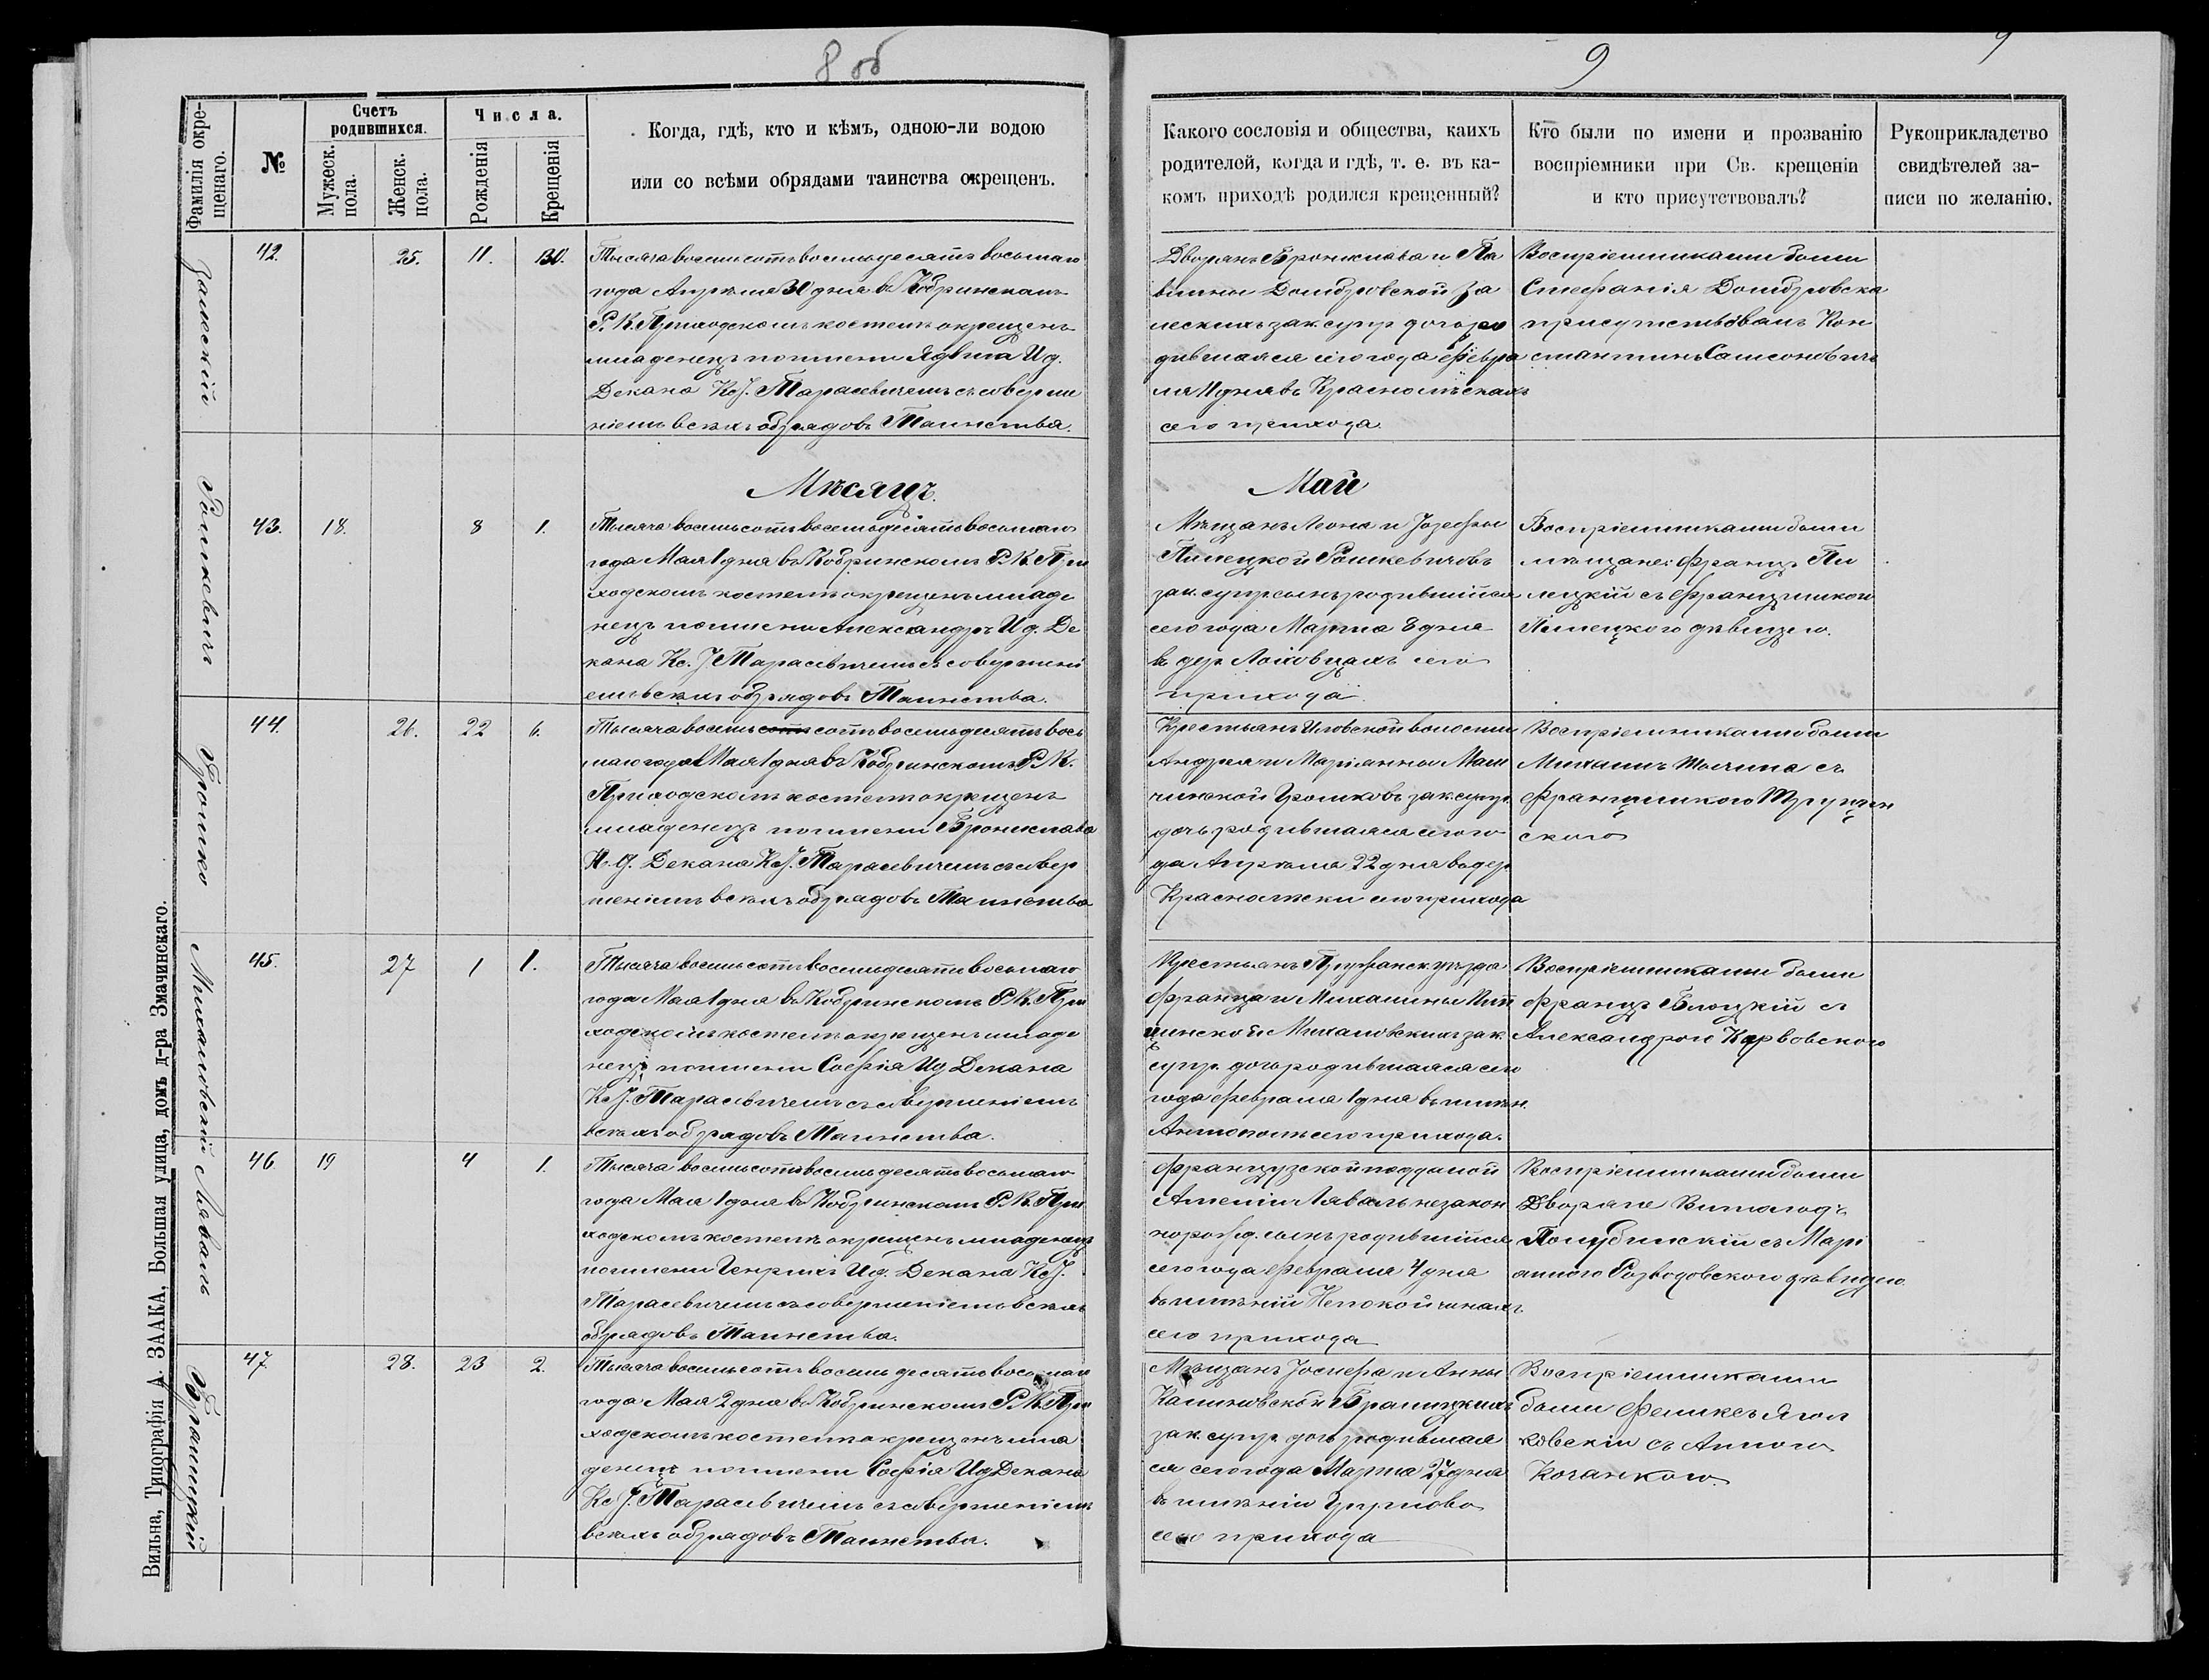 8 об
9
9
Фамилія окре-
щенаго.
№
Счетъ
родившихся.
Мужеск.
пола.
Женск.
пола.
Числа.
Рожденія
Крещенія
Когда, гдѣ, кто и кѣмъ, одною-ли водою
или со всѣми обрядами таинства окрещенъ.
Какого сословія и общества, каихъ
родителей, когда и гдѣ, т. е. въ ка-
комъ приходѣ родился крещенный?
Кто были по имени и прозванію
воспріемники при Св. крещеніи
и кто присутствовалъ?
Рукоприкладство
свидѣтелей за-
писи по желанію.
Залескій
42. 25. 11. 30.
Тысяча восемьсотъ восемьдесятъ восьмаго
года Апрѣля 30 дня въ Кобринскомъ
Р. К. Приходскомъ костелѣ окрещенъ
младенецъ по имени Ядвига И д.
Декана Кс. J. Тарасевичемъ съ соверше
ніемъ всѣхъ обрядовъ Таинства.
Дворянъ Бронислава и Па
влины Домбровской За
лескихъ зак. супр. дочь ро
дившаяся сего года Февра
ля 11 дня въ Краснолѣскахъ
сего прихода.
Воспріемниками были
Стефанія Домбровска
присутствовалъ Кон
стантинъ Самсоновичъ
Мѣсяцъ.
Май
Рошкевичъ
43. 18. 8 1.
Тысяча восемьсотъ восемьдесятъ восьмаго
года Мая 1 дня въ Кобринскомъ Р. К. При
ходскомъ костелѣ окрещенъ младе
нецъ по имени Александръ И д. Де
кана Кс. J Тарасевичемъ съ совершені
емъ всѣхъ обрядовъ Таинства.
Мѣщанъ Леона и Jозефы
Пилецкой Рошкевичовъ
зак. супр. сынъ родившійся
сего года Марта 8 дня
въ дер. Ляховцахъ сего
прихода
Воспріемниками были
мѣщане: Францъ Пи
лецкій съ Францишкой
Илецкого дѣвицею.
Громко
44. 26. 22 6.
Тысяча восемь сотъ восемьдесятъ вось
маго года Мая 1 дня въ Кобринскомъ Р. К.
Приходскомъ костелѣ окрещенъ
младенецъ по имени Бронислава
И. д. Декана Кс J. Тарасевичемъ съ совер
шеніемъ всѣхъ обрядовъ Таинства
Крестьянъ Иловской волости
Андрея и Маріанны Маш
чинской Громковъ зак. супр.
дочь родившаяся сего го
да Апрѣля 22 дня въ дер.
Краснолѣски сего прихода
Воспріемниками были
Михаилъ съ
Францишкою
скою
Михаловскій
45. 27 1 1.
Тысяча восемьсотъ восемьдесятъ восьмаго
года Мая 1 дня въ Кобринскомъ Р. К. При
ходскомъ костелѣ окрещенъ младе
нецъ по имени Софія И д Декана
Кс J. Тарасевичемъ съ совершеніемъ
всѣхъ обрядовъ Таинства.
Крестьянъ Пружанск. уѣзда
Франца и Михалины
щинской Михаловскихъ зак.
супр. дочь родившаяся сего
года Февраля 1 дня въ имѣн.
Антополь сего прихода.
Воспріемниками были
Францъ Блоцкій съ
Александрою Карвовскою
Леваль
46. 19 4 1.
Тысяча восемьсотъ восемьдесятъ восьмаго
года Мая 1 дня въ Кобринскомъ Р. К. При
ходскомъ костелѣ окрещенъ младенецъ
по имени Генрихъ И д. Декана Кс J.
Тарасевичемъ съ совершеніемъ всѣхъ
обрядовъ Таинства.
Французской подданой
Амеліи Леваль незакон
норожд. сынъ родившійся
сего года Февраля 4 дня
въ имѣніи Непокойчикахъ
сего прихода
Воспріемниками были
Дворяне Витольдъ
Полубинскій съ Марі
анною Розводовского дѣвицею
Бралицкій
47. 28. 23 2.
Тысяча восемьсотъ восемь десятъ восьмаго
года Мая 2 дня въ Кобринскомъ Р. К. При
ходскомъ костелѣ окрещенъ мла
денецъ по имени Софія И д Декана
Кс J. Тарасевичемъ съ совершеніемъ
всѣхъ обрядовъ Таинства.
Мѣщанъ Jосифа и Анны
Калиновской Бралицкихъ
зак. супр. дочь родившая
ся сего года Марта 27 дня
въ имѣніи Грушова
сего прихода
Воспріемниками
были Феликсъ Ягол
ковскій съ Анною
Кочанкою.
Вильна, Типографія А. ЗААКА, Большая улица, домъ д-ра Змачинскаго.